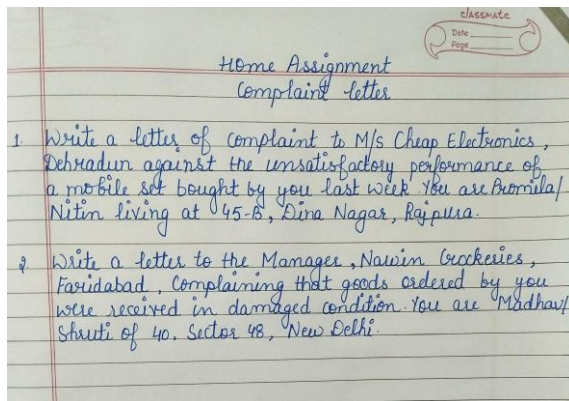 classmate
Date
Page
Home Assignment
Complaint letter
1. Write a letter of complaint to M/s Cheap Electronics,
Dehradun against the unsatisfactory performance of
a mobile set bought by you last week. You are Promila/
Nitin living at 45-B, Dina Nagar, Rajpura.
2. Write a letter to the Manager, Nawin Crockeries,
Faridabad, Complaining that goods ordered by you
were received in damaged condition. You are Madhav/
Shruti of 40. Sector 48, New Delhi.